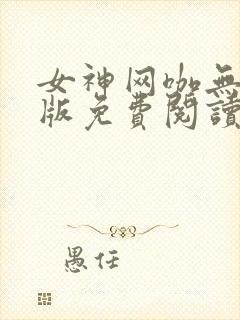 女神网咖無
版免費閱讀
愚任